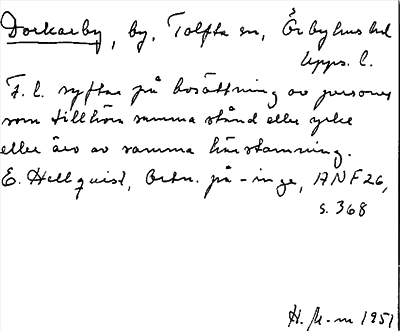 Dorkarby, by, Tolfta sn, Örbyhus hd
Upps. l.
F. l. syftar på bosättning av personer
som tillhöra samma stånd eller yrke
eller äro av samma härstamning.
E. Hellquist, Ortn. på -inge, ANF 26,
s. 368
H. M-m 1951